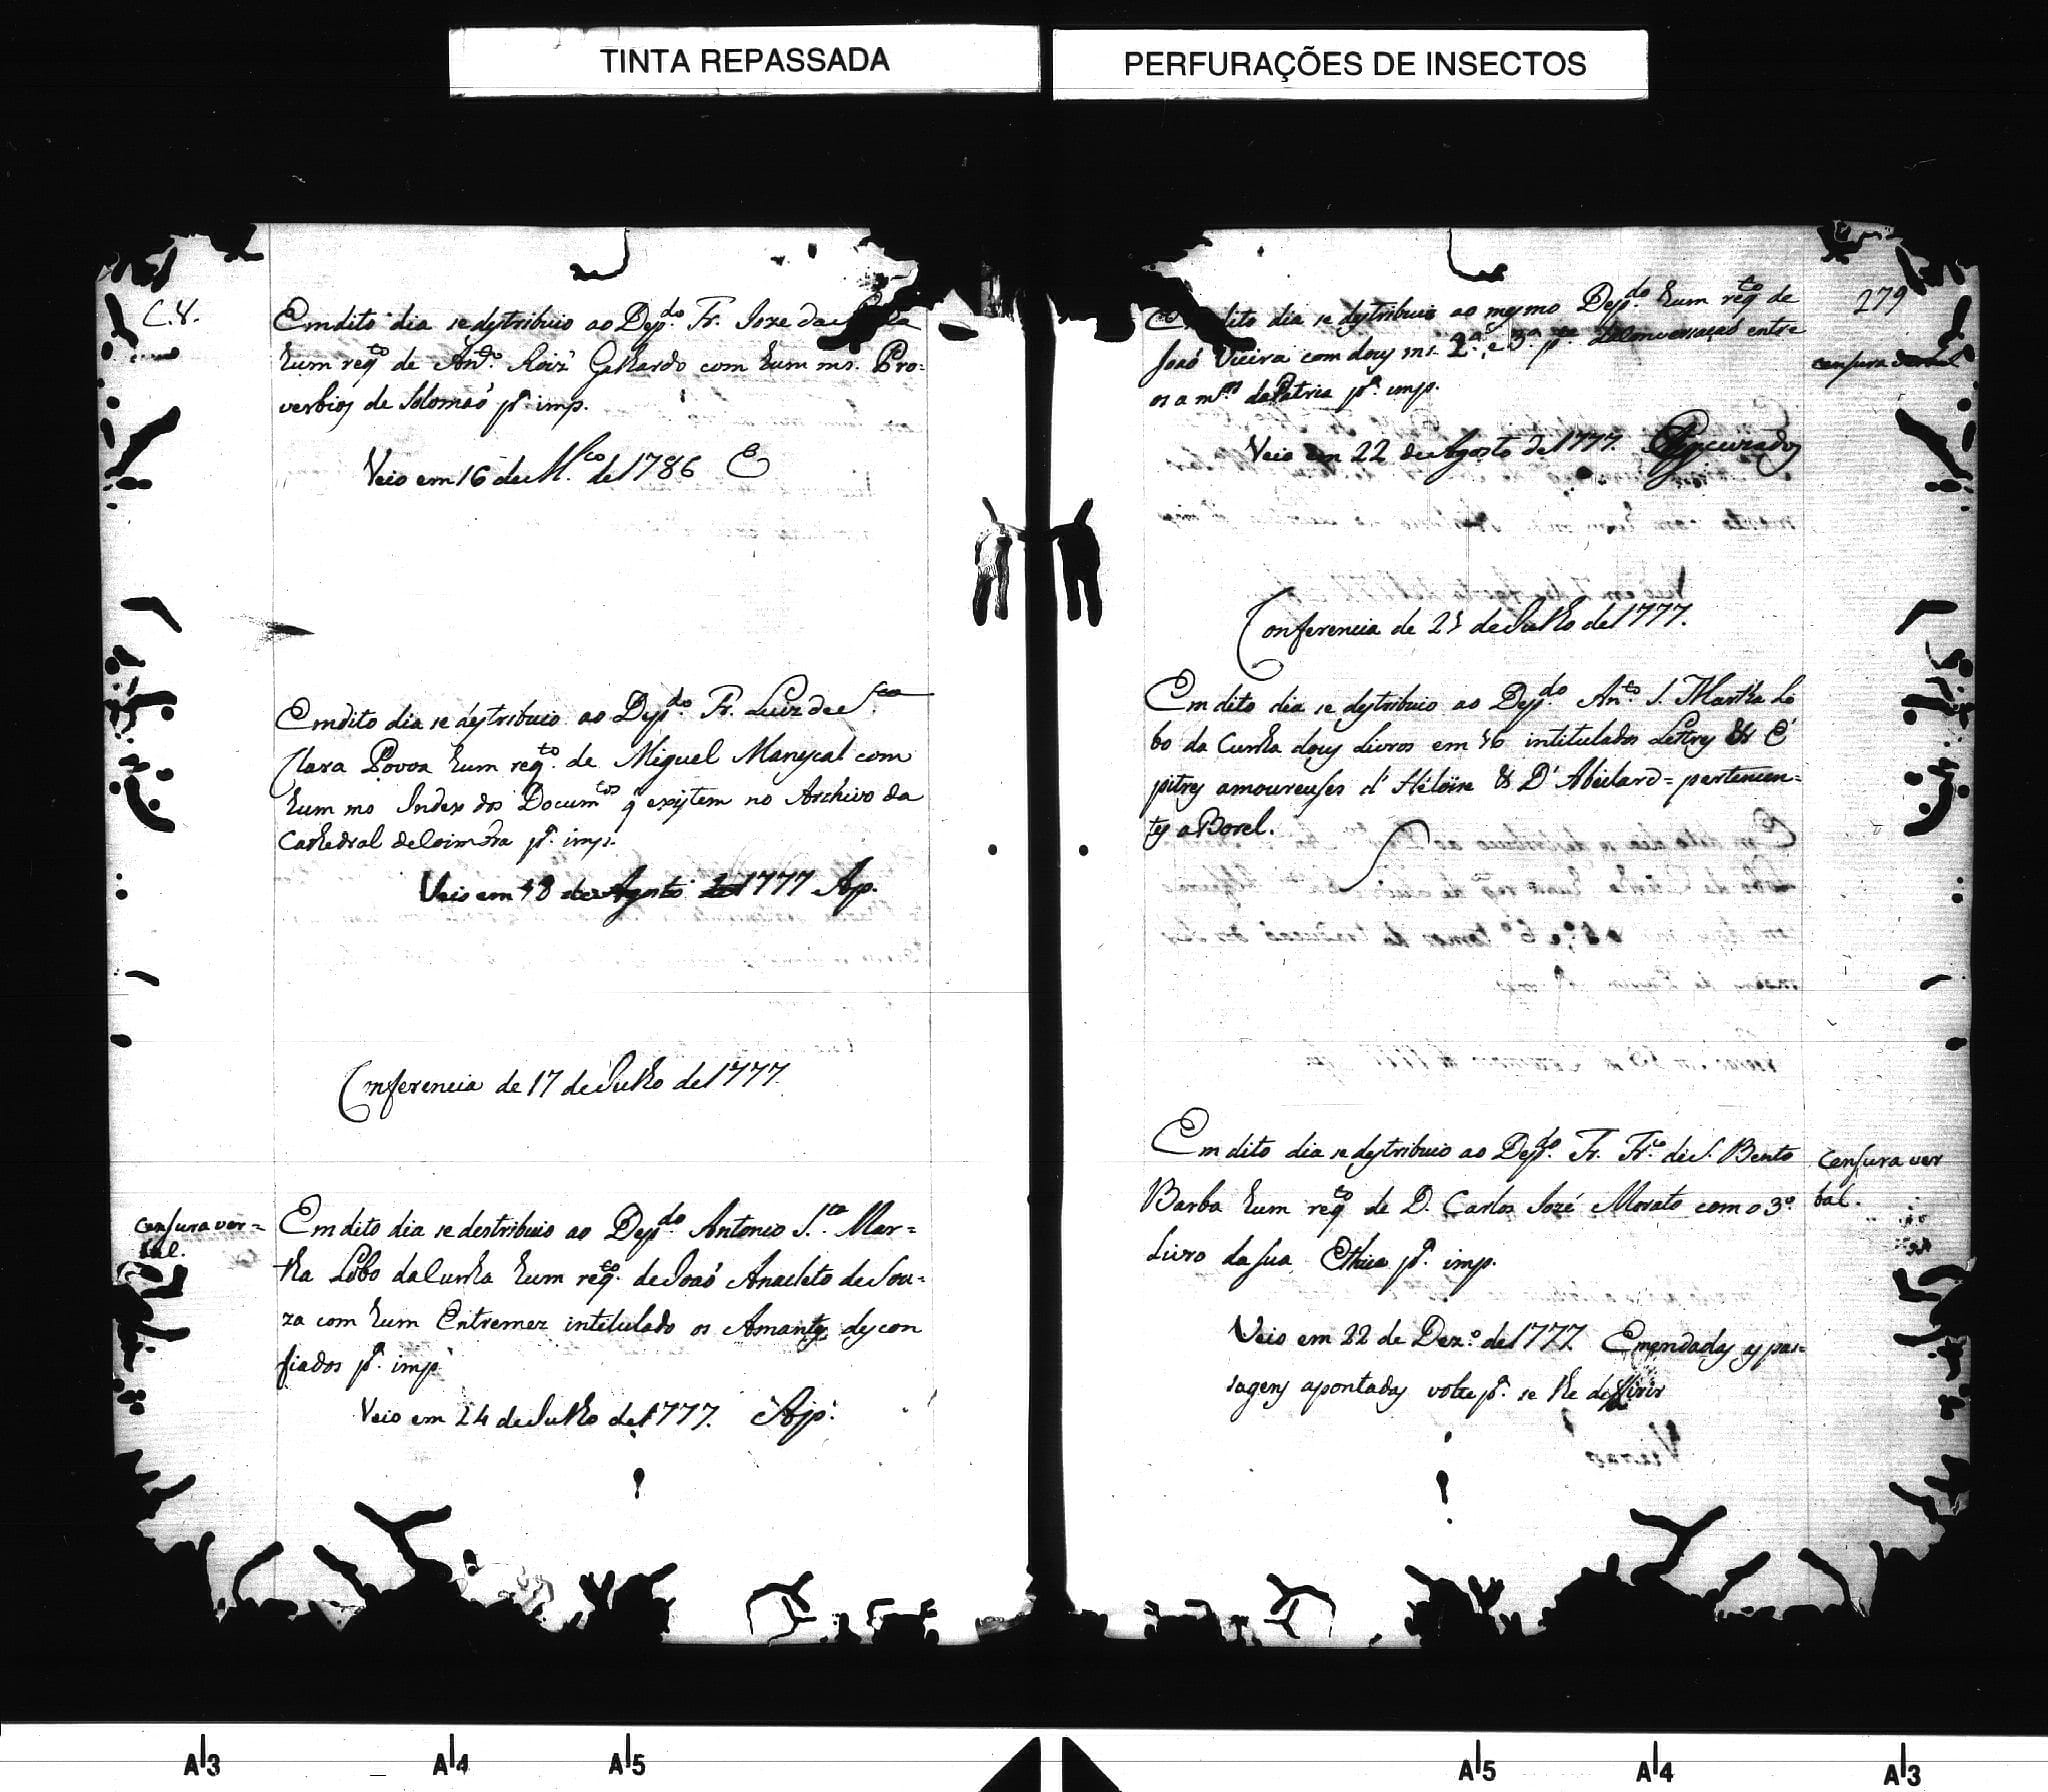 TINTA REPASSADA
PERFURAÇÕES DE INSECTOS
C.V.
Em dito dia se destribuio ao Dep.do Fr. Joze da
hum req.to de And.e Roiz' Galhardo com hum ms. Pro-
verbios de Solomaõ p.a imp.
Veio em 16 de M.co de 1786 E
Em dito dia se destribuio ao Dep.do Fr. Luiz de S.ta
Clara Povoa hum req.to de Miguel Manescal com
hum ms Index dos Docum.tos q existem no Archivo da
Cathedral de Coimbra p.a imp.
Veio em 18 de Agosto de 1777 Ap.
Conferencia de 17 de Julho de 1777.
censura ver=
bal.
Em dito dia se destribuio ao Dep.do Antonio S.ta Mar=
tha Lobo da Cunha hum req.to de Joaõ Anacleto de Sou=
za com hum Entremez intitulado os Amantes descon
fiados p.a imp.
Veio em 24 de Julho de 1777. Ap.
279
Em dito dia se destribuio ao mesmo Dep.do hum req.to de
Joaõ Vieira com dous ms. 2.a e 3.a p.te da Conversaçaõ entre
os am.os da Patria p.a imp.
censura verbal
Veio em 22 de Agosto de 1777. Escuzados
Conferencia de 21 de Julho de 1777.
Em dito dia se destribuio ao Dep.do Ant.o S. Martha Lo
bo da Cunha dous Livros em 16 intitulados Lettres & E
pitres amoureuses d'Héloïse & D'Abeilard = pertencen=
tes a Borel.
Em dito dia se destribuio ao Dep.do Fr. Fr.co de S. Bento
Barba hum req.to de D. Carlos Jozé Morato com o 3.o
Livro da sua Ethica p.a imp.
Censura ver
bal.
Veio em 22 de Dez.o de 1777. Emendadas as pas=
sagens apontadas volte p.a se lhe differir
A3
A4
A5
A5
A4
A3